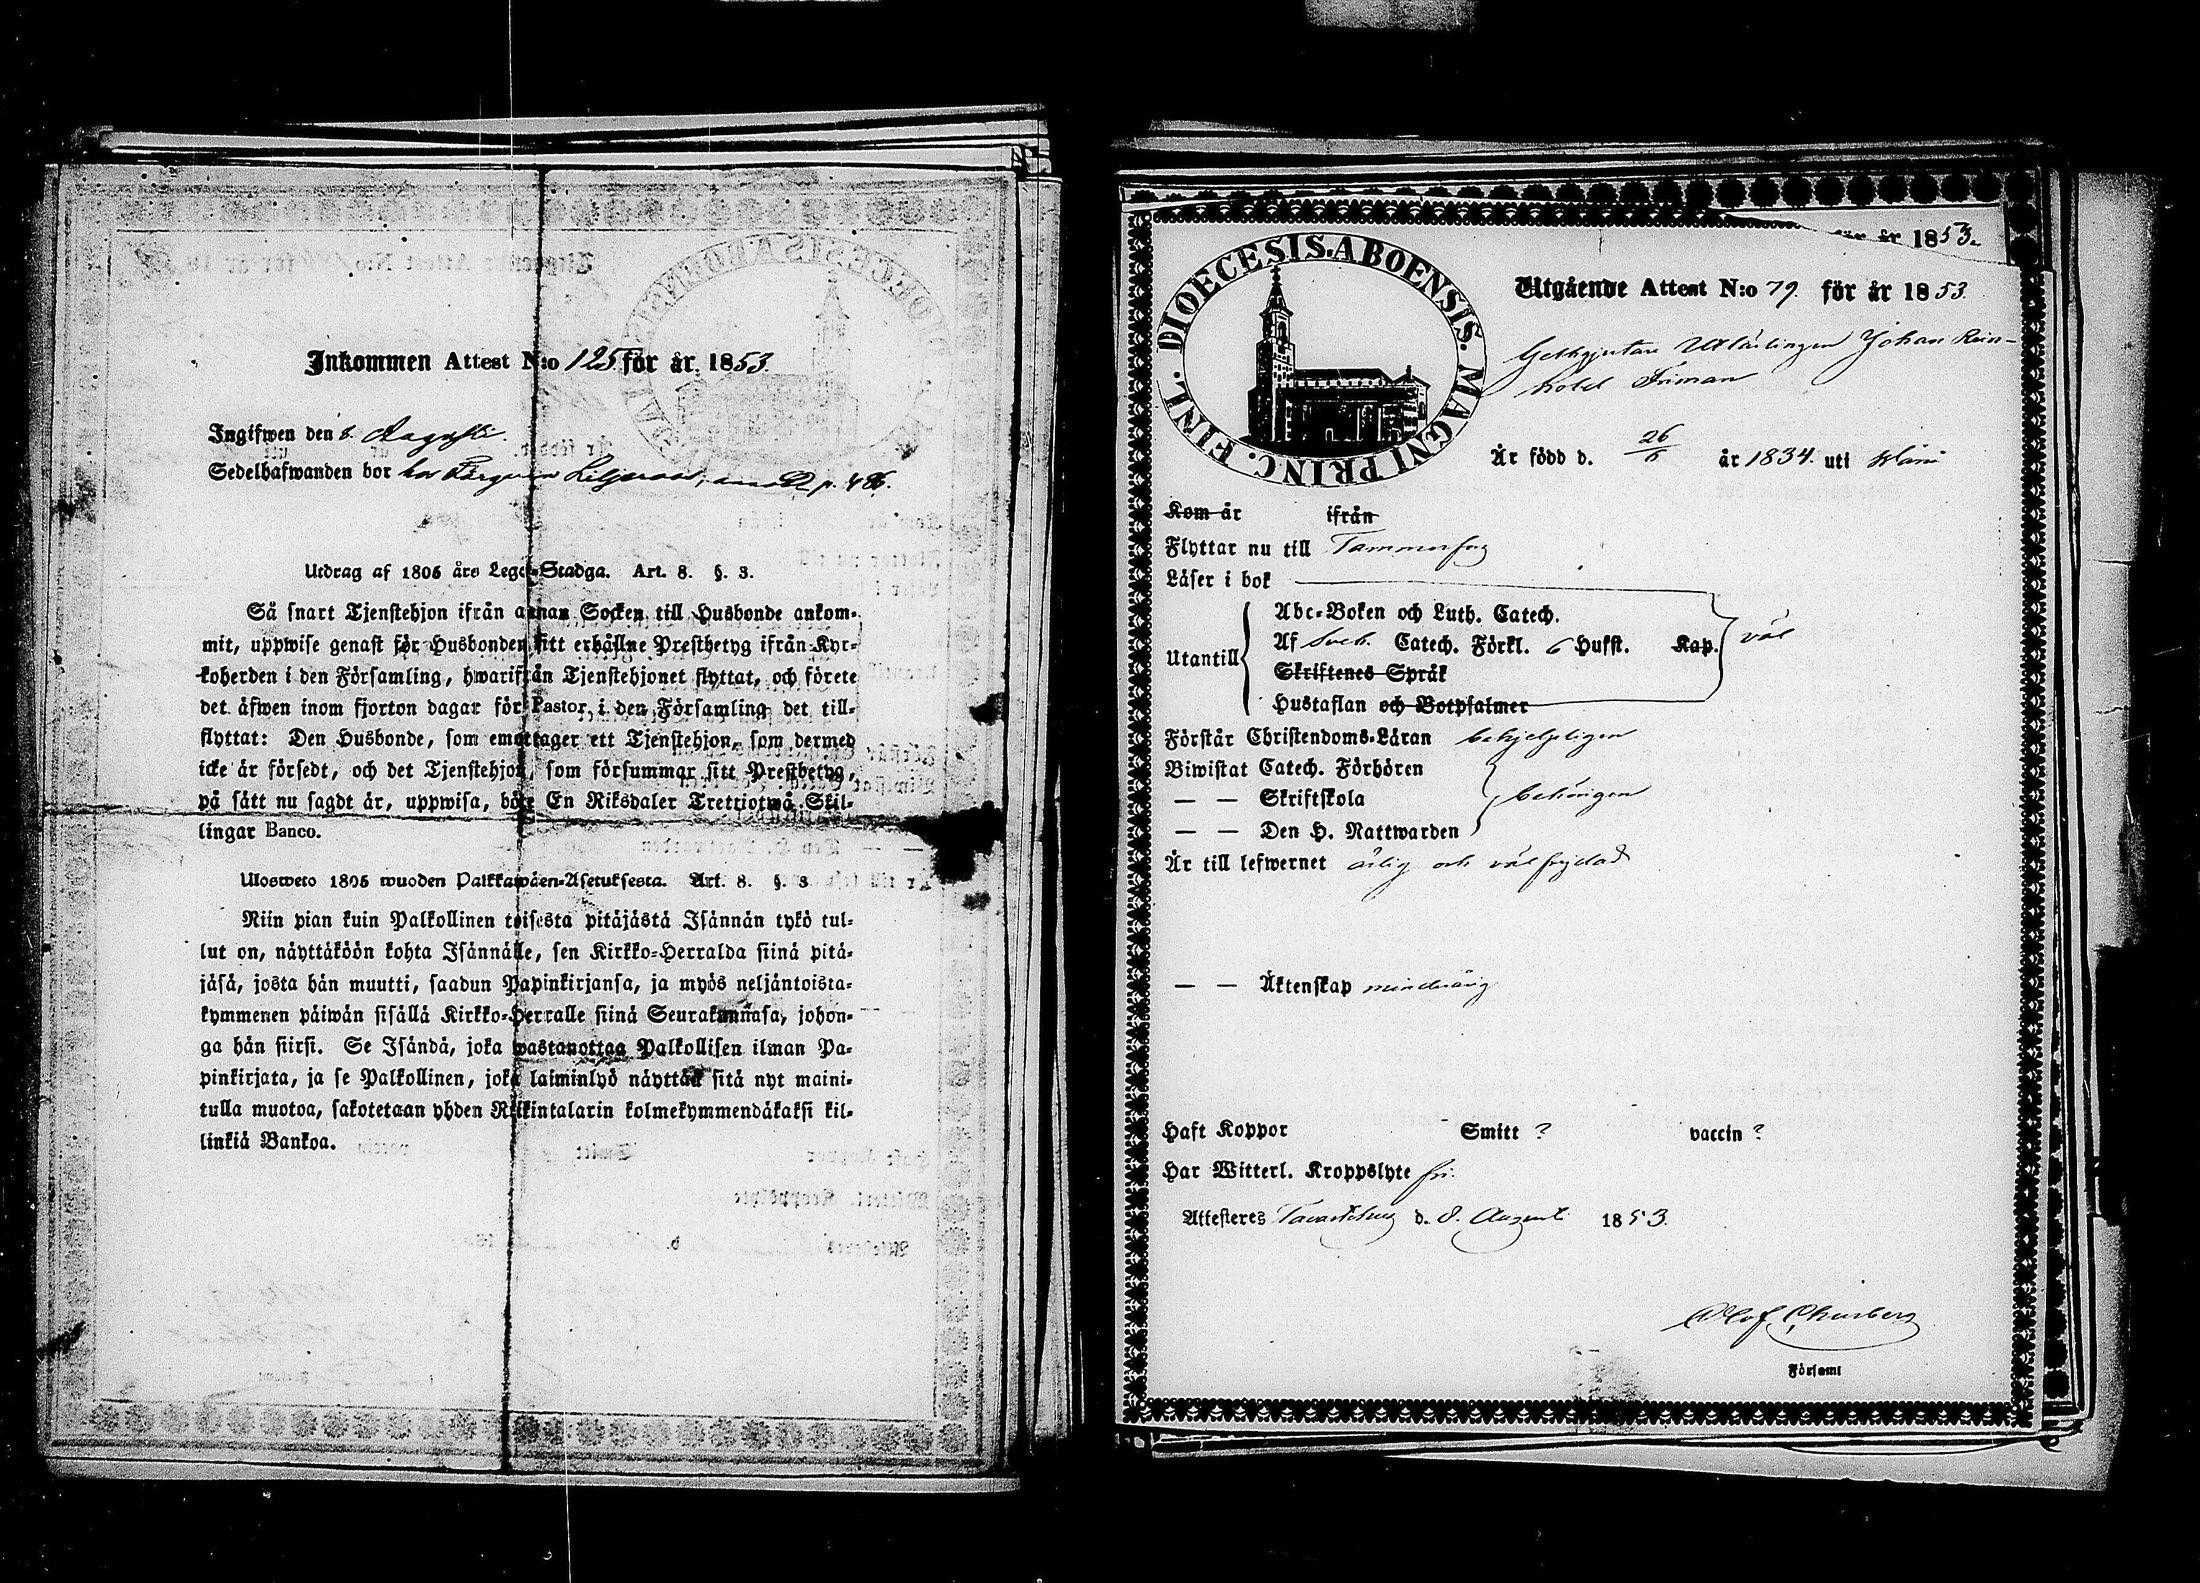 Inkommen Attest N:o 125 för år 1853.
Ingifwen den 8. Augusti.
Sedelhafwanden bor hos p. 486.
Utdrag af 1805 års Lego-Stadga. Art. 8. §. 3.
Så snart Tjenstehjon ifrån annan Socken till Husbonde ankom-
mit, uppwise genast för Husbonden sitt erhållne Prestbetyg ifrån Kyr-
koherden i den Församling, hwarifrån Tjenstehjonet flyttat, och förete
det äfwen inom fjorton dagar för Pastor i den Församling det till-
flyttat: Den Husbonde, som emottager ett Tjenstehjon, som dermed
icke är försedt, och det Tjenstehjon, som försummar sitt Prestbetyg,
på sätt nu sagdt är, uppwisa, böte En Riksdaler Trettiotwå Skil-
lingar Banco.
Ulosweto 1805 wuoden Palkkawäen-Asetuksesta. Art. 8. §. 3
Niin pian kuin Palkollinen toisesta pitäjästä Isännän tykö tul-
lut on, näyttäköön kohta Isännälle, sen Kirkko-Herralda siinä pitä-
jäsä, josta hän muutti, saadun Papinkirjansa, ja myös neljäntoista-
kymmenen päiwän sisällä Kirkko-Herralle siinä Seurakunnasa, johon-
ga hän siirsi. Se Isändä, joka wastanottaa Palkollisen ilman Pa-
pinkirjata, ja se Palkollinen, joka laiminlyö näyttää sitä nyt maini-
tulla muotoa, sakotetaan yhden Riikintalarin kolmekymmendäkaksi kil-
linkiä Bankoa.
för år 1853.
DIOECESIS. ABOENSIS. MAGNI PRINC. FINL.
Utgående Attest N:o 79. för år 1853.
Utlärlingen Johan Rein-
hold Friman
Är född d. 26/5 år 1834. uti
Kom år ifrån
Flyttar nu till Tammerfors
Läser i bok
Abc-Boken och Luth. Catech.
Af Sveb. Catech. Förkl. 6 Hufst. Kap. väl
Utantill
Skriftenes Språk
Hustaflan och Botpsalmer
Förstår Christendoms-Läran behjelpligen
Biwistat Catech. Förhören
— — Skriftskola behörigen
— — Den H. Nattwarden
Är till lefwernet ärlig och välfrejdad
— — Äktenskap minderårig
Haft Koppor Smitt ? vaccin ?
Har Witterl. Kroppslyte fri.
Attesteres Tavastehus d. 8. Augusti 1853.
Olof Churberg
Församl